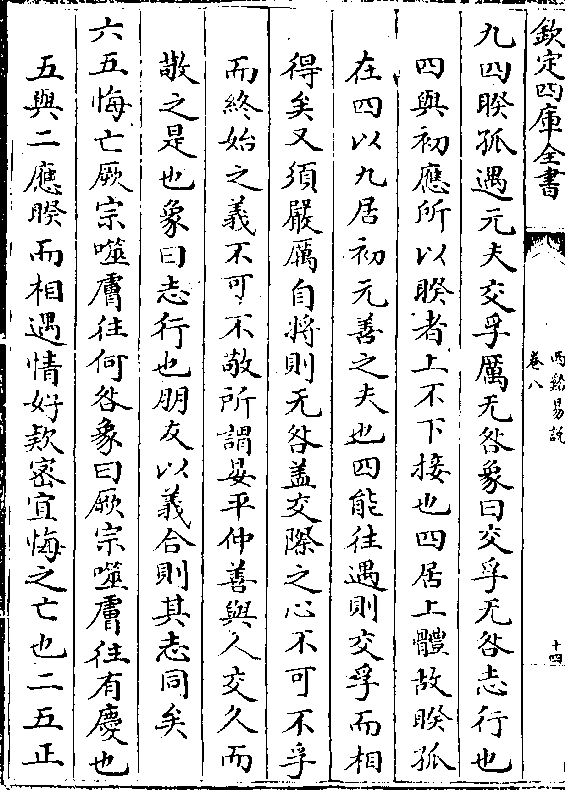 欽定四庫全書
西谿易說
卷八
十四
九四睽孤遇元夫交孚厲无咎象曰交孚无咎志行也
四與初應所以睽者上不下接也四居上體故睽孤
在四以九居初元善之夫也四能往遇則交孚而相
得矣又須嚴厲自將則无咎盖交際之心不可不孚
而終始之義不可不敬所謂晏平仲善與人交久而
敬之是也象曰志行也朋友以義合則其志同矣
六五悔亡厥宗噬膚往何咎象曰厥宗噬膚往有慶也
五與二應睽而相遇情好款密宜悔之亡也二五正